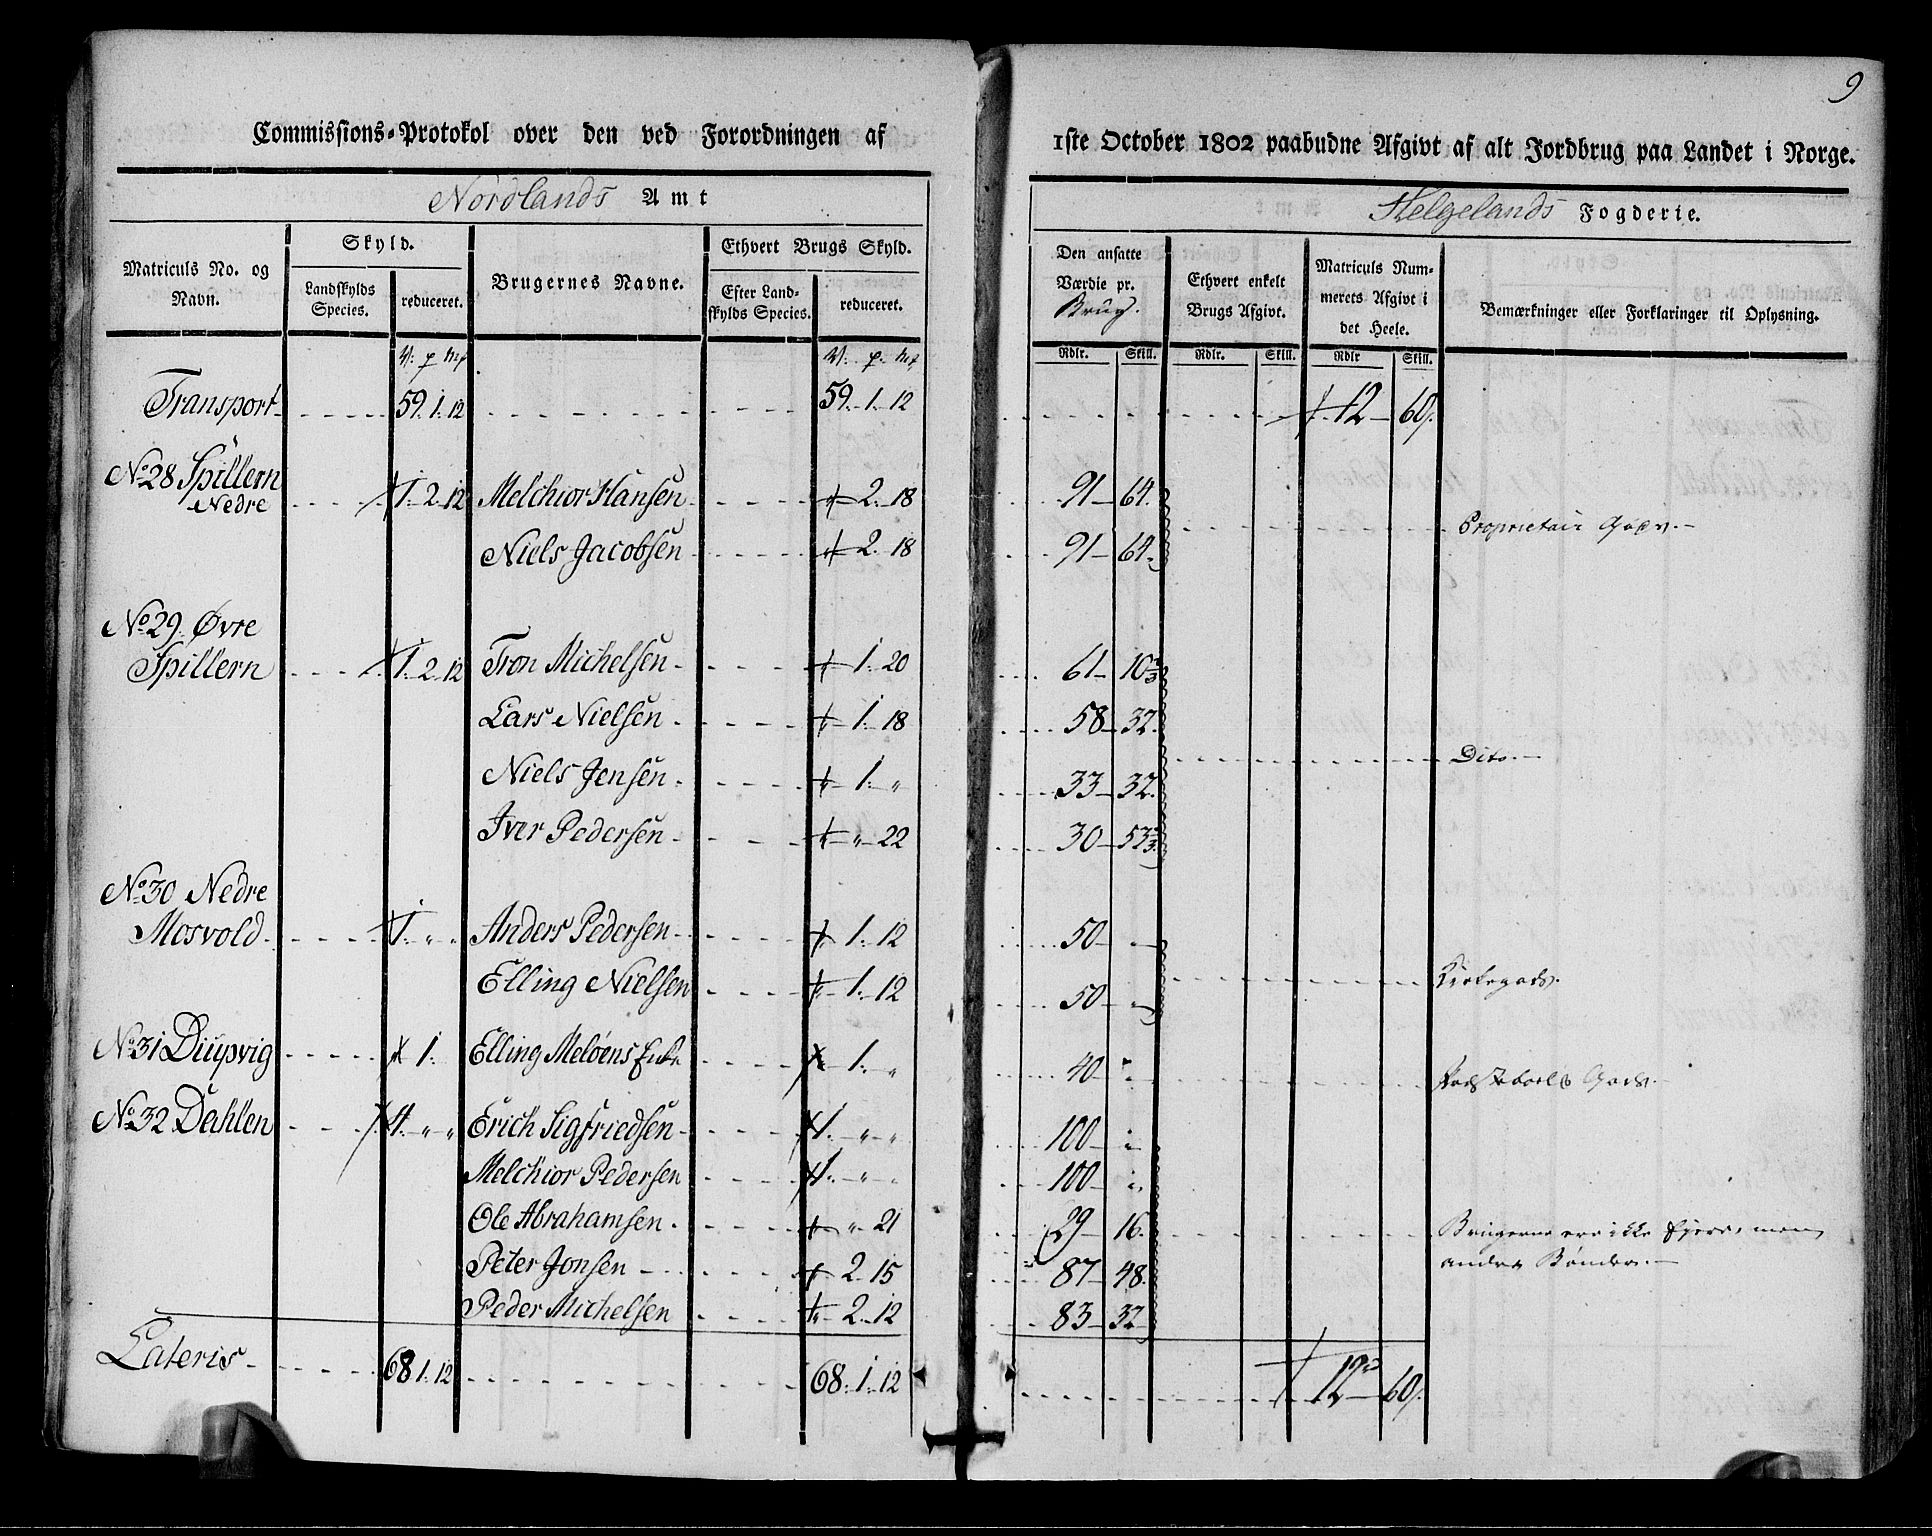 9
Commissions-Protokol over den ved Forordningen af 1ste October 1802 paabudne Afgivt af alt Jordbrug paa Landet i Norge.
Nordlands Amt Helgelands Fogderie.
Matriculs No. og Navn.
Skyld.
Landskylds Species.
reduceret.
Brugernes Navne.
Ethvert Brugs Skyld.
Efter Landskylds Species.
reduceret.
Den ansatte Værdie pr. Brug.
Ethvert enkelt Brugs Afgivt.
Matriculs Nummerets Afgivt i det Heele.
Bemærkninger eller Forklaringer til Oplysning.
V: p Mk V: p. Mk Rdlr. Skill. Rdlr. Skill. Rdlr Skill.
Transport 59. 1. 12 59. 1. 12 12 60.
No 28 Spillern
Nedre 1. 2. 12 Melchior Hansen 2. 18 91 64.
Proprietair
Niels Jacobsen 2. 18 91 64.
No 29. Øvre
Spillern 1. 2. 12 Tron Michelsen 1. 20 61 10 2/3
Lars Nielsen 1. 18 58 32.
Dito.
Niels Jensen 1. " 33 32.
Iver Pedersen " 22 30 53 1/3
No 30 Nedre
Mosvold 1. " " Anders Pedersen 1. 12 50
Elling Nielsen 1. 12 50 Kirkegods.
No 31 Diupvig 1. Elling Meløens Enke 1. " 40
No 32 Dahlen 4. " " Erich Sigfriedsen 1. " " 100
Melchior Pedersen 1. " " 100
Ole Abrahamsen " 21 29 16. Brugerne ere ikke Ejere, men
Peter Jonsen 2. 15 87 48. andre Bønder.
Peder Michelsen 2. 12 83 32
Lateris 68 1. 12 68. 1. 12 12 60.